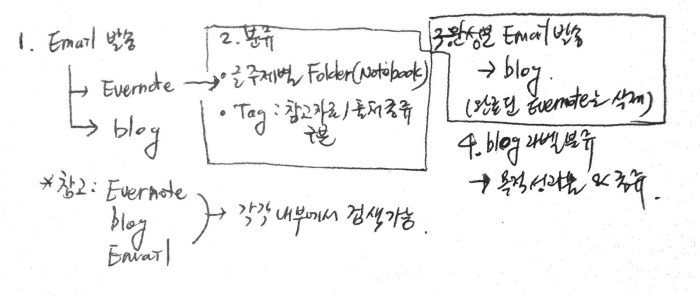 1. Email 발송
→ Evernote →
→ blog
2. 분류
• 글 주제별 Folder(Notobook)
• Tag : 참고자료 / 출처 종류
구분
3. 완성편 Email 발송
→ blog.
(완료된 Evernote는 삭제)
4. blog 라벨 분류
→ 목적성과물 & 종류.
* 참고 : Evernote
blog
Email
→ 각각 내부에서 검색가능.